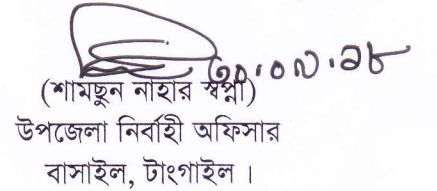 (শামছুন নাহার স্বপ্না)
উপজেলা নির্বাহী অফিসার
বাসাইল, টাংগাইল ।